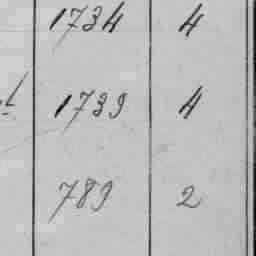 1734 4
1739 4
789 2